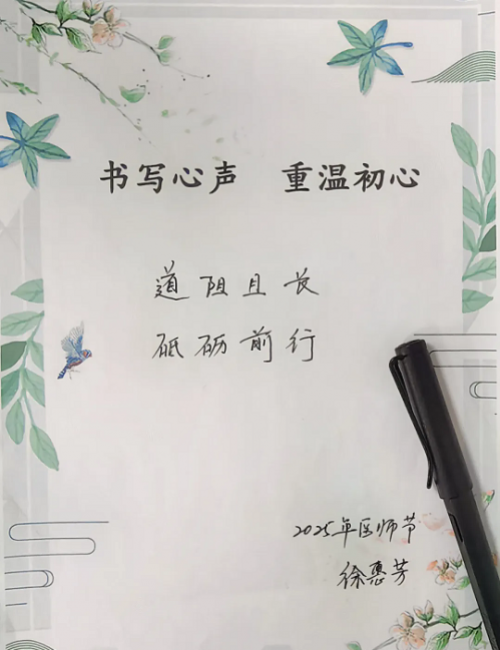 书写心声 重温初心
道阻且长
砥砺前行
2025年医师节
徐惠芳